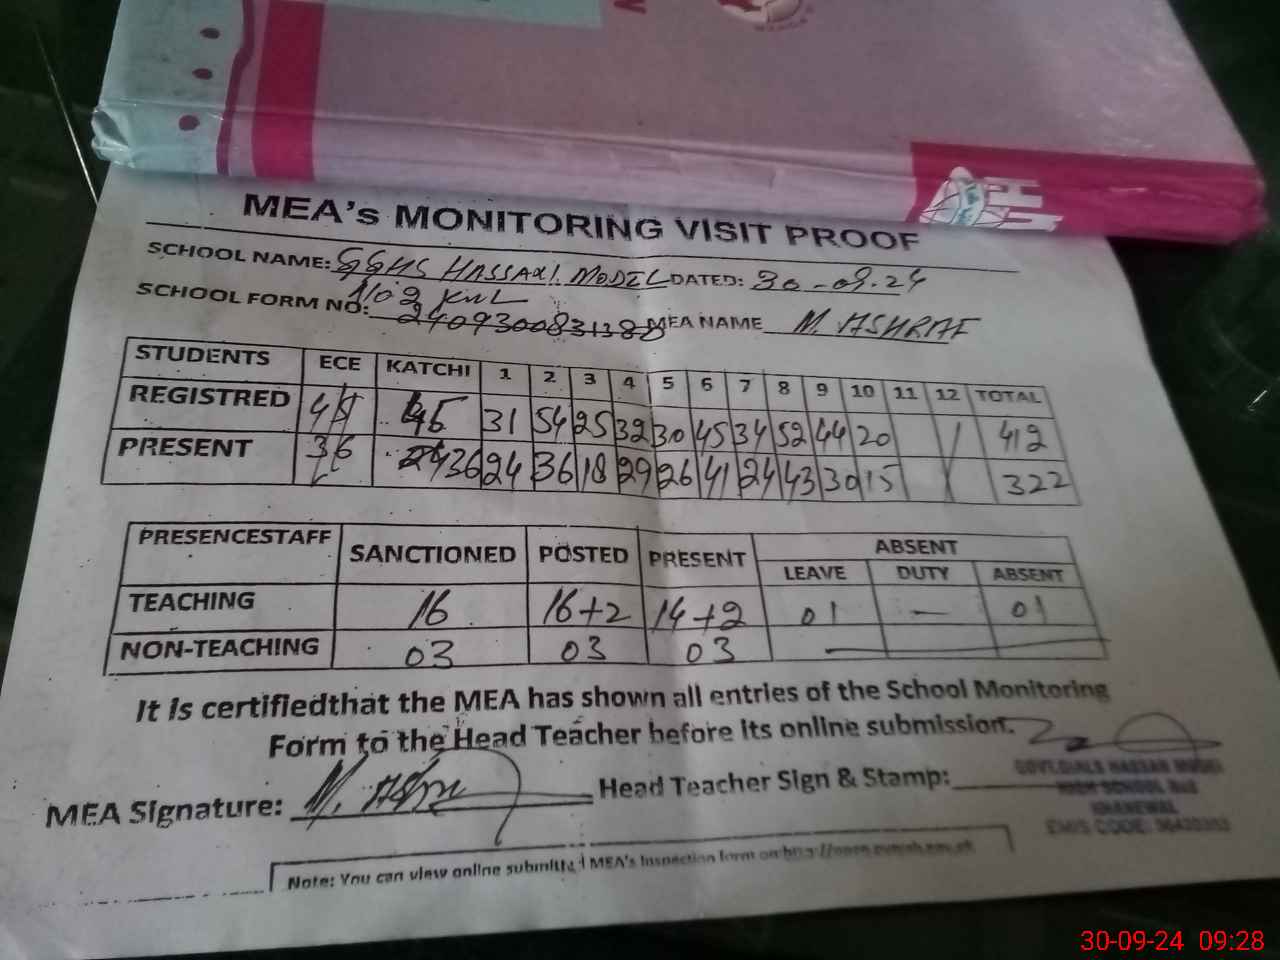 MEA's MONITORING VISIT PROOF
SCHOOL NAME: GGHS HASSAN MODEL DATED: 30-09-24
109 KWL
SCHOOL FORM NO: 2409300831388 MEA NAME M. ASHRAF
STUDENTS ECE KATCHI 1 2 3 4 5 6 7 8 9 10 11 12 TOTAL
REGISTRED 45 45 31 54 25 32 30 45 34 52 44 20 / 412
PRESENT 36 36 24 36 18 29 26 41 24 43 30 15 / 322
PRESENCESTAFF SANCTIONED POSTED PRESENT ABSENT
LEAVE DUTY ABSENT
TEACHING 16 16+2 14+2 01 — 01
NON-TEACHING 03 03 03 —
It is certifiedthat the MEA has shown all entries of the School Monitoring
Form to the Head Teacher before its online submission.
MEA Signature: M. Ashraf Head Teacher Sign & Stamp:
GOVT.GIRLS HASSAN MODEL
HIGH SCHOOL
KHANEWAL
EMIS CODE:
Note: You can view online submitted MEA's Inspection form on
30-09-24 09:28